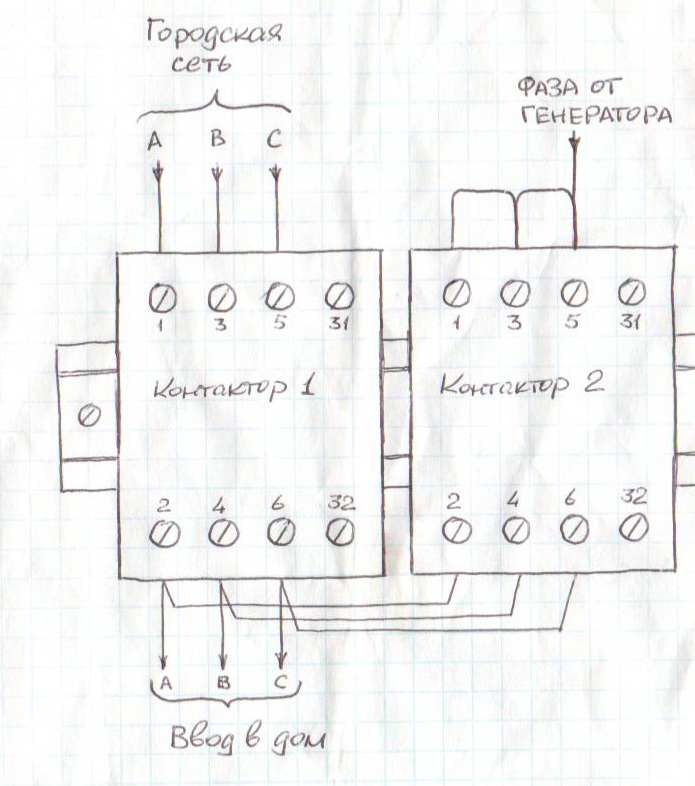 Городская
сеть
A B C
ФАЗА ОТ
ГЕНЕРАТОРА
1 3 5 31
1 3 5 31
Контактор 1
Контактор 2
2 4 6 32
2 4 6 32
A B C
Ввод в дом